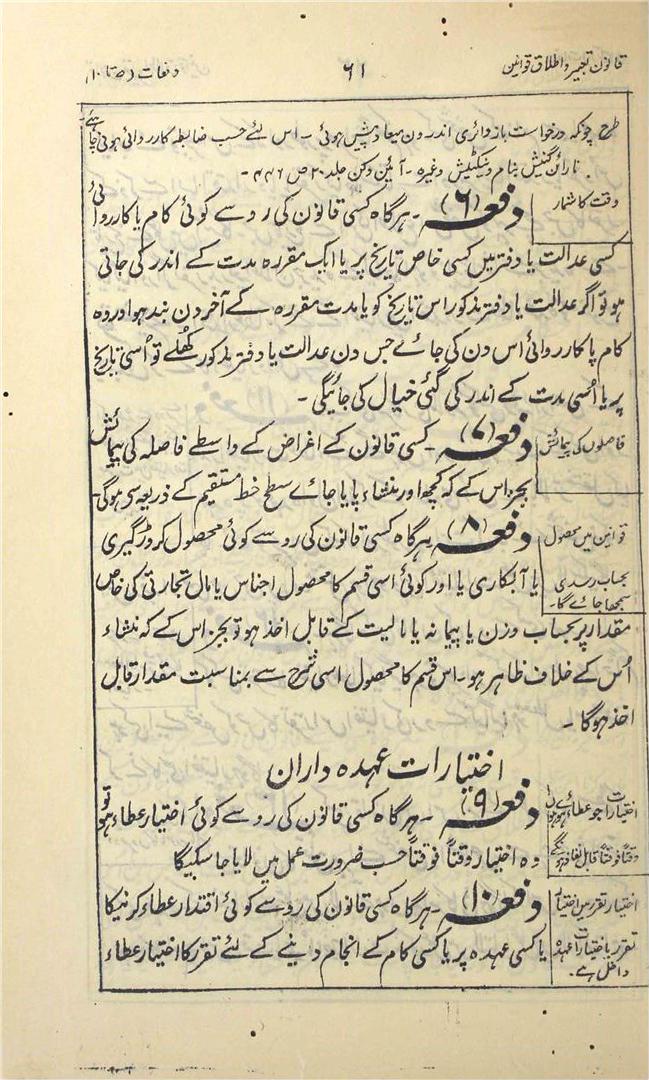 قانون تعبیر و اطلاق قوانین
۶۱
دفعات (۶ تا ۱۰)
طرح چونکہ درخواست باز دائری اندرون میعاد پیش ہوئی ۔ اس لئے حسب ضابطہ کارروائی ہونی چاہئے۔
نارائن گنیش بنام ونیکٹیش وغیرہ ۔ آئین دکن جلد ۲۰ ص ۴۴۶ ۔
وقت کا شمار
دفعہ (۶) ۔ ہرگاہ کسی قانون کی رو سے کوئی کام یا کارروائی
کسی عدالت یا دفتر میں کسی خاص تاریخ پر یا ایک مقررہ مدت کے اندر کی جاتی
ہو تو اگر عدالت یا دفتر مذکور اس تاریخ کو یا مدت مقررہ کے آخر دن بند ہو اور وہ
کام یا کارروائی اس دن کی جائے جس دن عدالت یا دفتر مذکور کھلے تو اُسی تاریخ
پر یا اُسی مدت کے اندر کی گئی خیال کی جائیگی ۔
فاصلوں کی پیمائش
دفعہ (۷) ۔ کسی قانون کے اغراض کے واسطے فاصلہ کی پیمائش
بجز اس کے کہ کچھ اور منشاء پایا جائے سطح خط مستقیم کے ذریعہ سے ہوگی۔
قوانین میں محصول
بحساب رسدی
سمجھا جائے گا۔
دفعہ (۸) ہرگاہ کسی قانون کی رو سے کوئی محصول کروڑ گیری
یا آبکاری یا اور کوئی اسی قسم کا محصول اجناس یا مال تجارتی کی خاص
مقدار پر بحساب وزن یا پیمانہ یا مالیت کے قابل اخذ ہو تو بجز اس کے کہ منشاء
اُس کے خلاف ظاہر ہو۔ اس قسم کا محصول اسی شرح سے بمناسبت مقدار قابل
اخذ ہوگا ۔
اختیارات عہدہ داران
اختیارات جو عطائے ہوں
وقتاً فوقتاً قابل نفاذ ہونگے
دفعہ (۹) ۔ ہرگاہ کسی قانون کی رو سے کوئی اختیار عطاء ہو تو
وہ اختیار وقتاً فوقتاً حسب ضرورت عمل میں لایا جا سکیگا
اختیار تقرر میں اختیار
تقرر باختیارات عہدہ
داخل ہے۔
دفعہ (۱۰) ۔ ہرگاہ کسی قانون کی رو سے کوئی اقتدار عطاء کرنیکا
یا کسی عہدہ پر یا کسی کام کے انجام دینے کے لئے تقرر کا اختیار عطاء